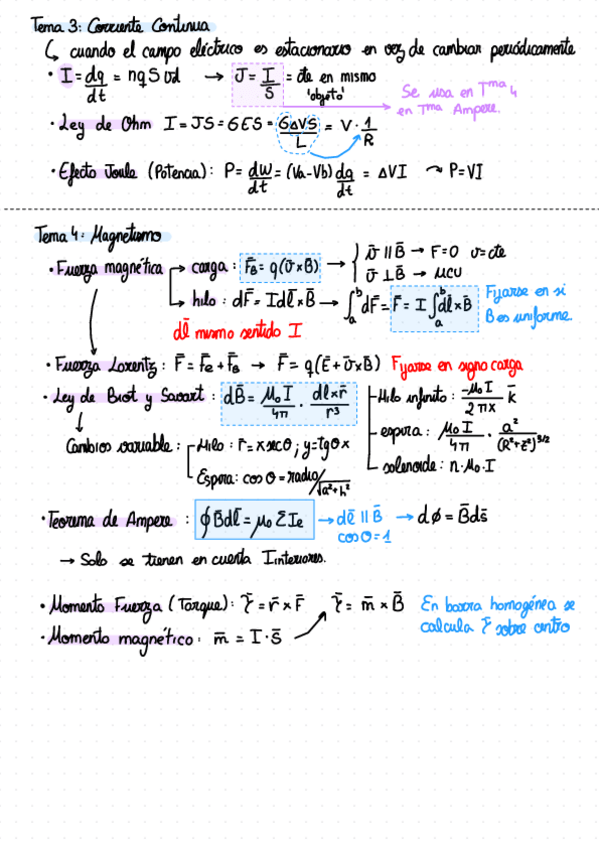 Tema 3: Corriente Continua
↳ cuando el campo eléctrico es estacionario en vez de cambiar periódicamente
• I = dq/dt = nqSvd → J = I/S = cte en mismo 'objeto'
Se usa en Tma 4
en Tma Ampere.
• Ley de Ohm I = JS = GES = GΔVS/L = V · 1/R
• Efecto Joule (Potencia): P = dw/dt = (Va-Vb) dq/dt = ΔVI ↝ P=VI
Tema 4: Magnetismo
• Fuerza magnética → carga: F̄B = q(v̄×B̄) → { v̄ ∥ B̄ → F=0 v=cte
v̄ ⊥ B̄ → MCU
→ hilo: dF̄ = Idl̄×B̄ → ∫ₐᵇ dF̄ = F̄ = I ∫ₐᵇ dl̄×B̄
Fijarse en si
B es uniforme.
dl̄ mismo sentido I
• Fuerza Lorentz: F̄ = F̄e + F̄B → F̄ = q(Ē + v̄×B̄) Fijarse en signo carga
• Ley de Biot y Savart: dB̄ = μ₀I/4π · dl̄×r̄/r³
Hilo infinito: -μ₀I/2πx k̄
espira: μ₀I/4π · a²/(R²+z²)^3/2
solenoide: n·μ₀·I
Cambios variable: Hilo: r = x secθ ; y = tgθx
Espira: cosθ = radio/√a²+h²
• Teorema de Ampere: ∮B̄dl̄ = μ₀ΣIe → dl̄ ∥ B̄ → dφ = B̄ds̄
cosθ=1
→ Solo se tienen en cuenta Iinteriores.
• Momento Fuerza (Torque): τ̄ = r̄ × F̄ τ̄ = m̄ × B̄
• Momento magnético: m̄ = I·S̄
En barra homogénea se
calcula τ̄ sobre centro